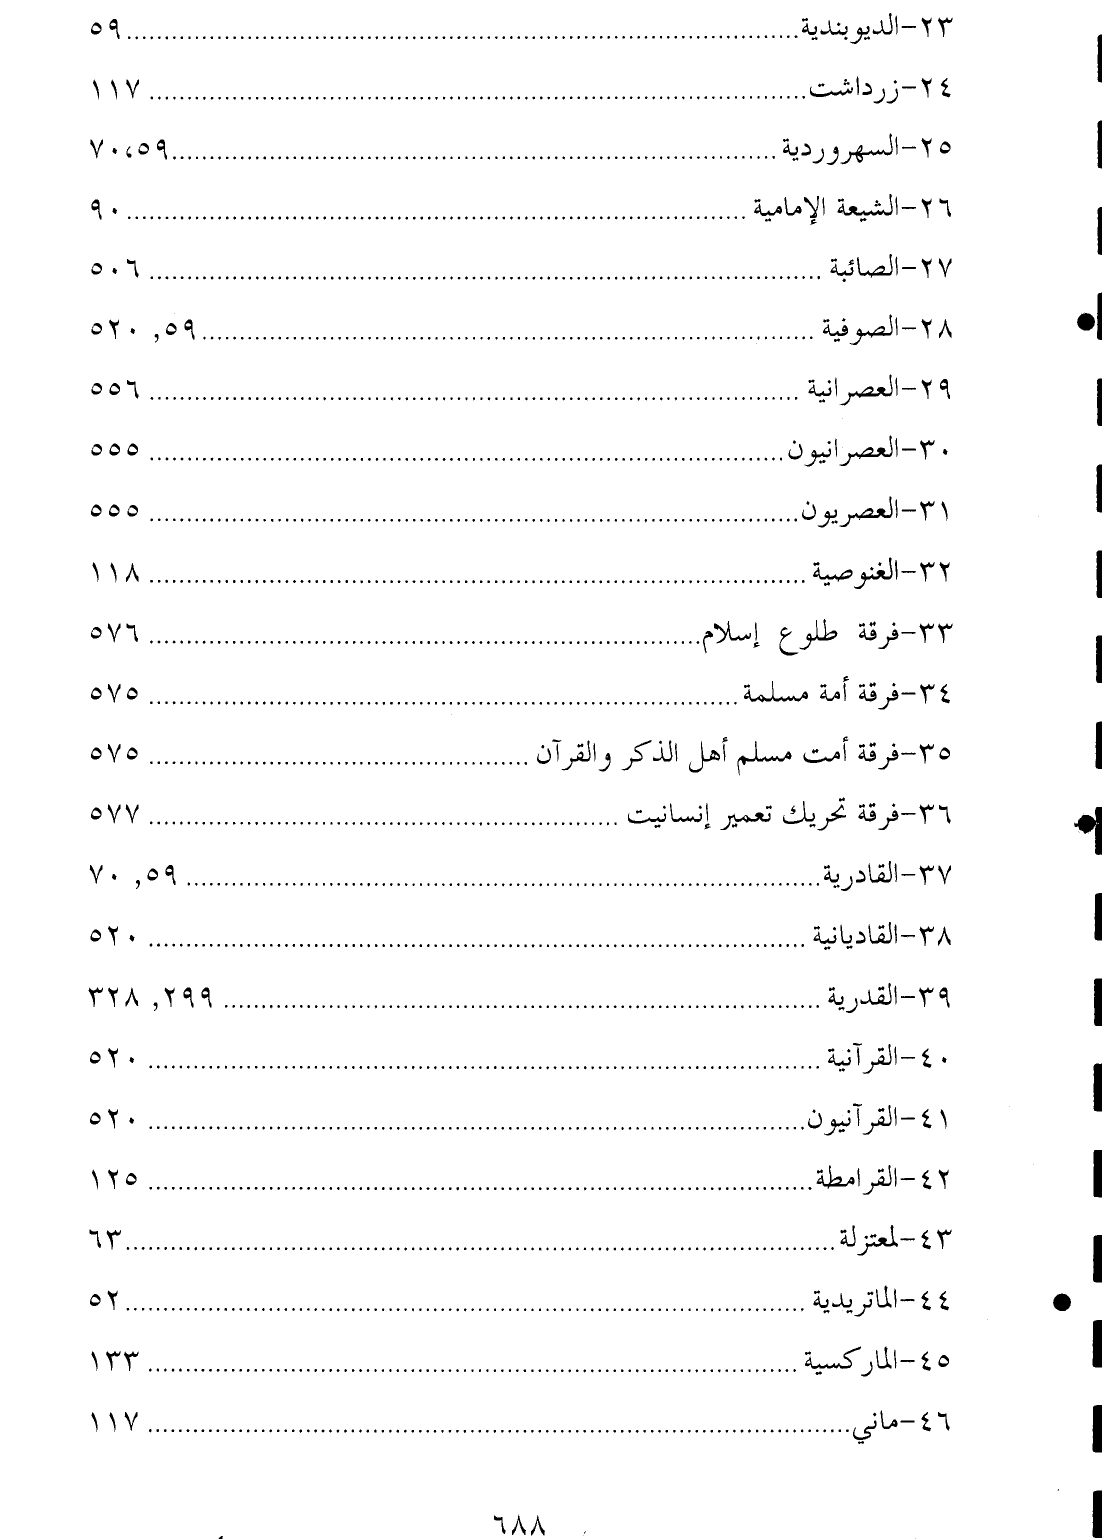 ٢٣-الديوبندية........................٥٩
٢٤-زرداشت........................١١٧
٢٥-السهروردية........................٧٠،٥٩
٢٦-الشيعة الإمامية........................٩٠
٢٧-الصائبة........................٥٠٦
٢٨-الصوفية........................٥٩, ٥٢٠
٢٩-العصرانية........................٥٥٦
٣٠-العصرانيون........................٥٥٥
٣١-العصريون........................٥٥٥
٣٢-الغنوصية........................١١٨
٣٣-فرقة طلوع إسلام........................٥٧٦
٣٤-فرقة أمة مسلمة........................٥٧٥
٣٥-فرقة أمت مسلم أهل الذكر والقرآن........................٥٧٥
٣٦-فرقة تحريك تعمير إنسانيت........................٥٧٧
٣٧-القادرية........................٥٩, ٧٠
٣٨-القاديانية........................٥٢٠
٣٩-القدرية........................٢٩٩, ٣٢٨
٤٠-القرآنية........................٥٢٠
٤١-القرآنيون........................٥٢٠
٤٢-القرامطة........................١٢٥
٤٣-لمعتزلة........................٦٣
٤٤-الماتريدية........................٥٢
٤٥-الماركسية........................١٣٣
٤٦-ماني........................١١٧
٦٨٨